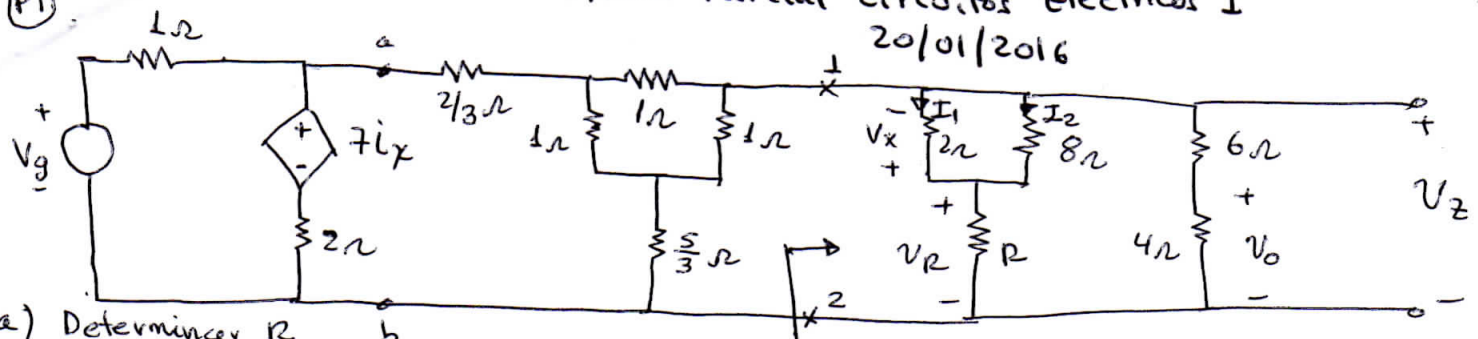 P1
Parcial Circuitos Eléctricos I
20/01/2016
1Ω
a
2/3 Ω
1Ω
1
+
Vg
-
+
-
7ix
1Ω
1Ω
- I1
Vx
2Ω
+
I2
8Ω
6Ω
+
Vz
2Ω
5/3 Ω
+
VR
R
-
4Ω
+
Vo
-
-
2
a) Determinar R
b